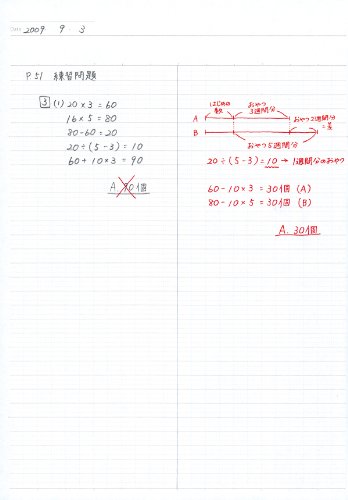 Date 2009 9 3
P.51 練習問題
3 (1) 20×3=60
16×5=80
80-60=20
20÷(5-3)=10
60+10×3=90
A. 90個
はじめの数 おやつ3週間分
A おやつ2週間分=差
B
おやつ5週間分
20÷(5-3)=10 → 1週間分のおやつ
60-10×3=30個 (A)
80-10×5=30個 (B)
A. 30個